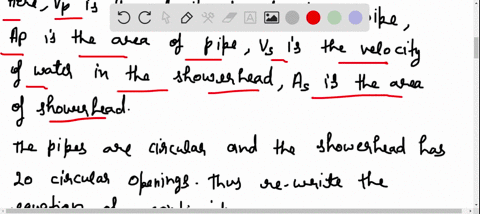 Here, Vp is the
pipe,
Ap is the area of pipe, Vs is the velocity
of water in the showerhead, As is the area
of showerhead.
The pipes are circular and the showerhead has
20 circular openings. Thus re-write the
equation of